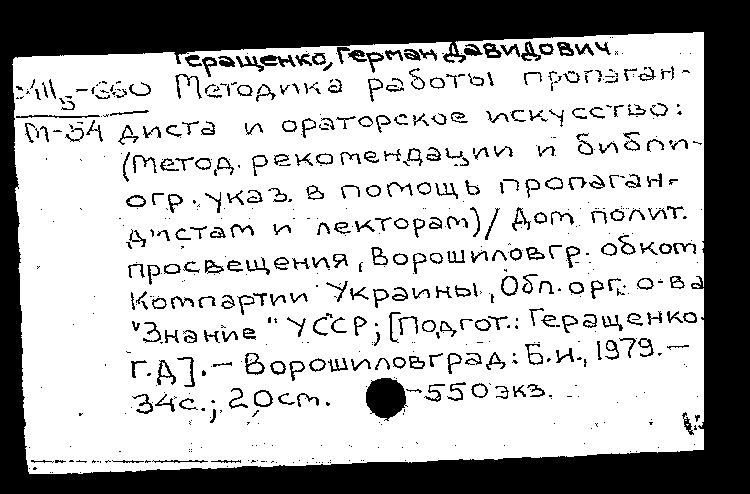 Геращенко, Герман Давидович.
VIII5-660 Методика работы пропаган-
М-54 диста и ораторское искусство:
(Метод. рекомендации и библи-
огр. указ. в помощь пропаган-
дистам и лекторам) / Дом полит.
просвещения, Ворошиловгр. обкома
Компартии Украины, Обл. орг. о-ва
"Знание" УССР; [Подгот.: Геращенко
Г.Д]. — Ворошиловград: Б.и., 1979. —
34с.; 20см. -550экз.